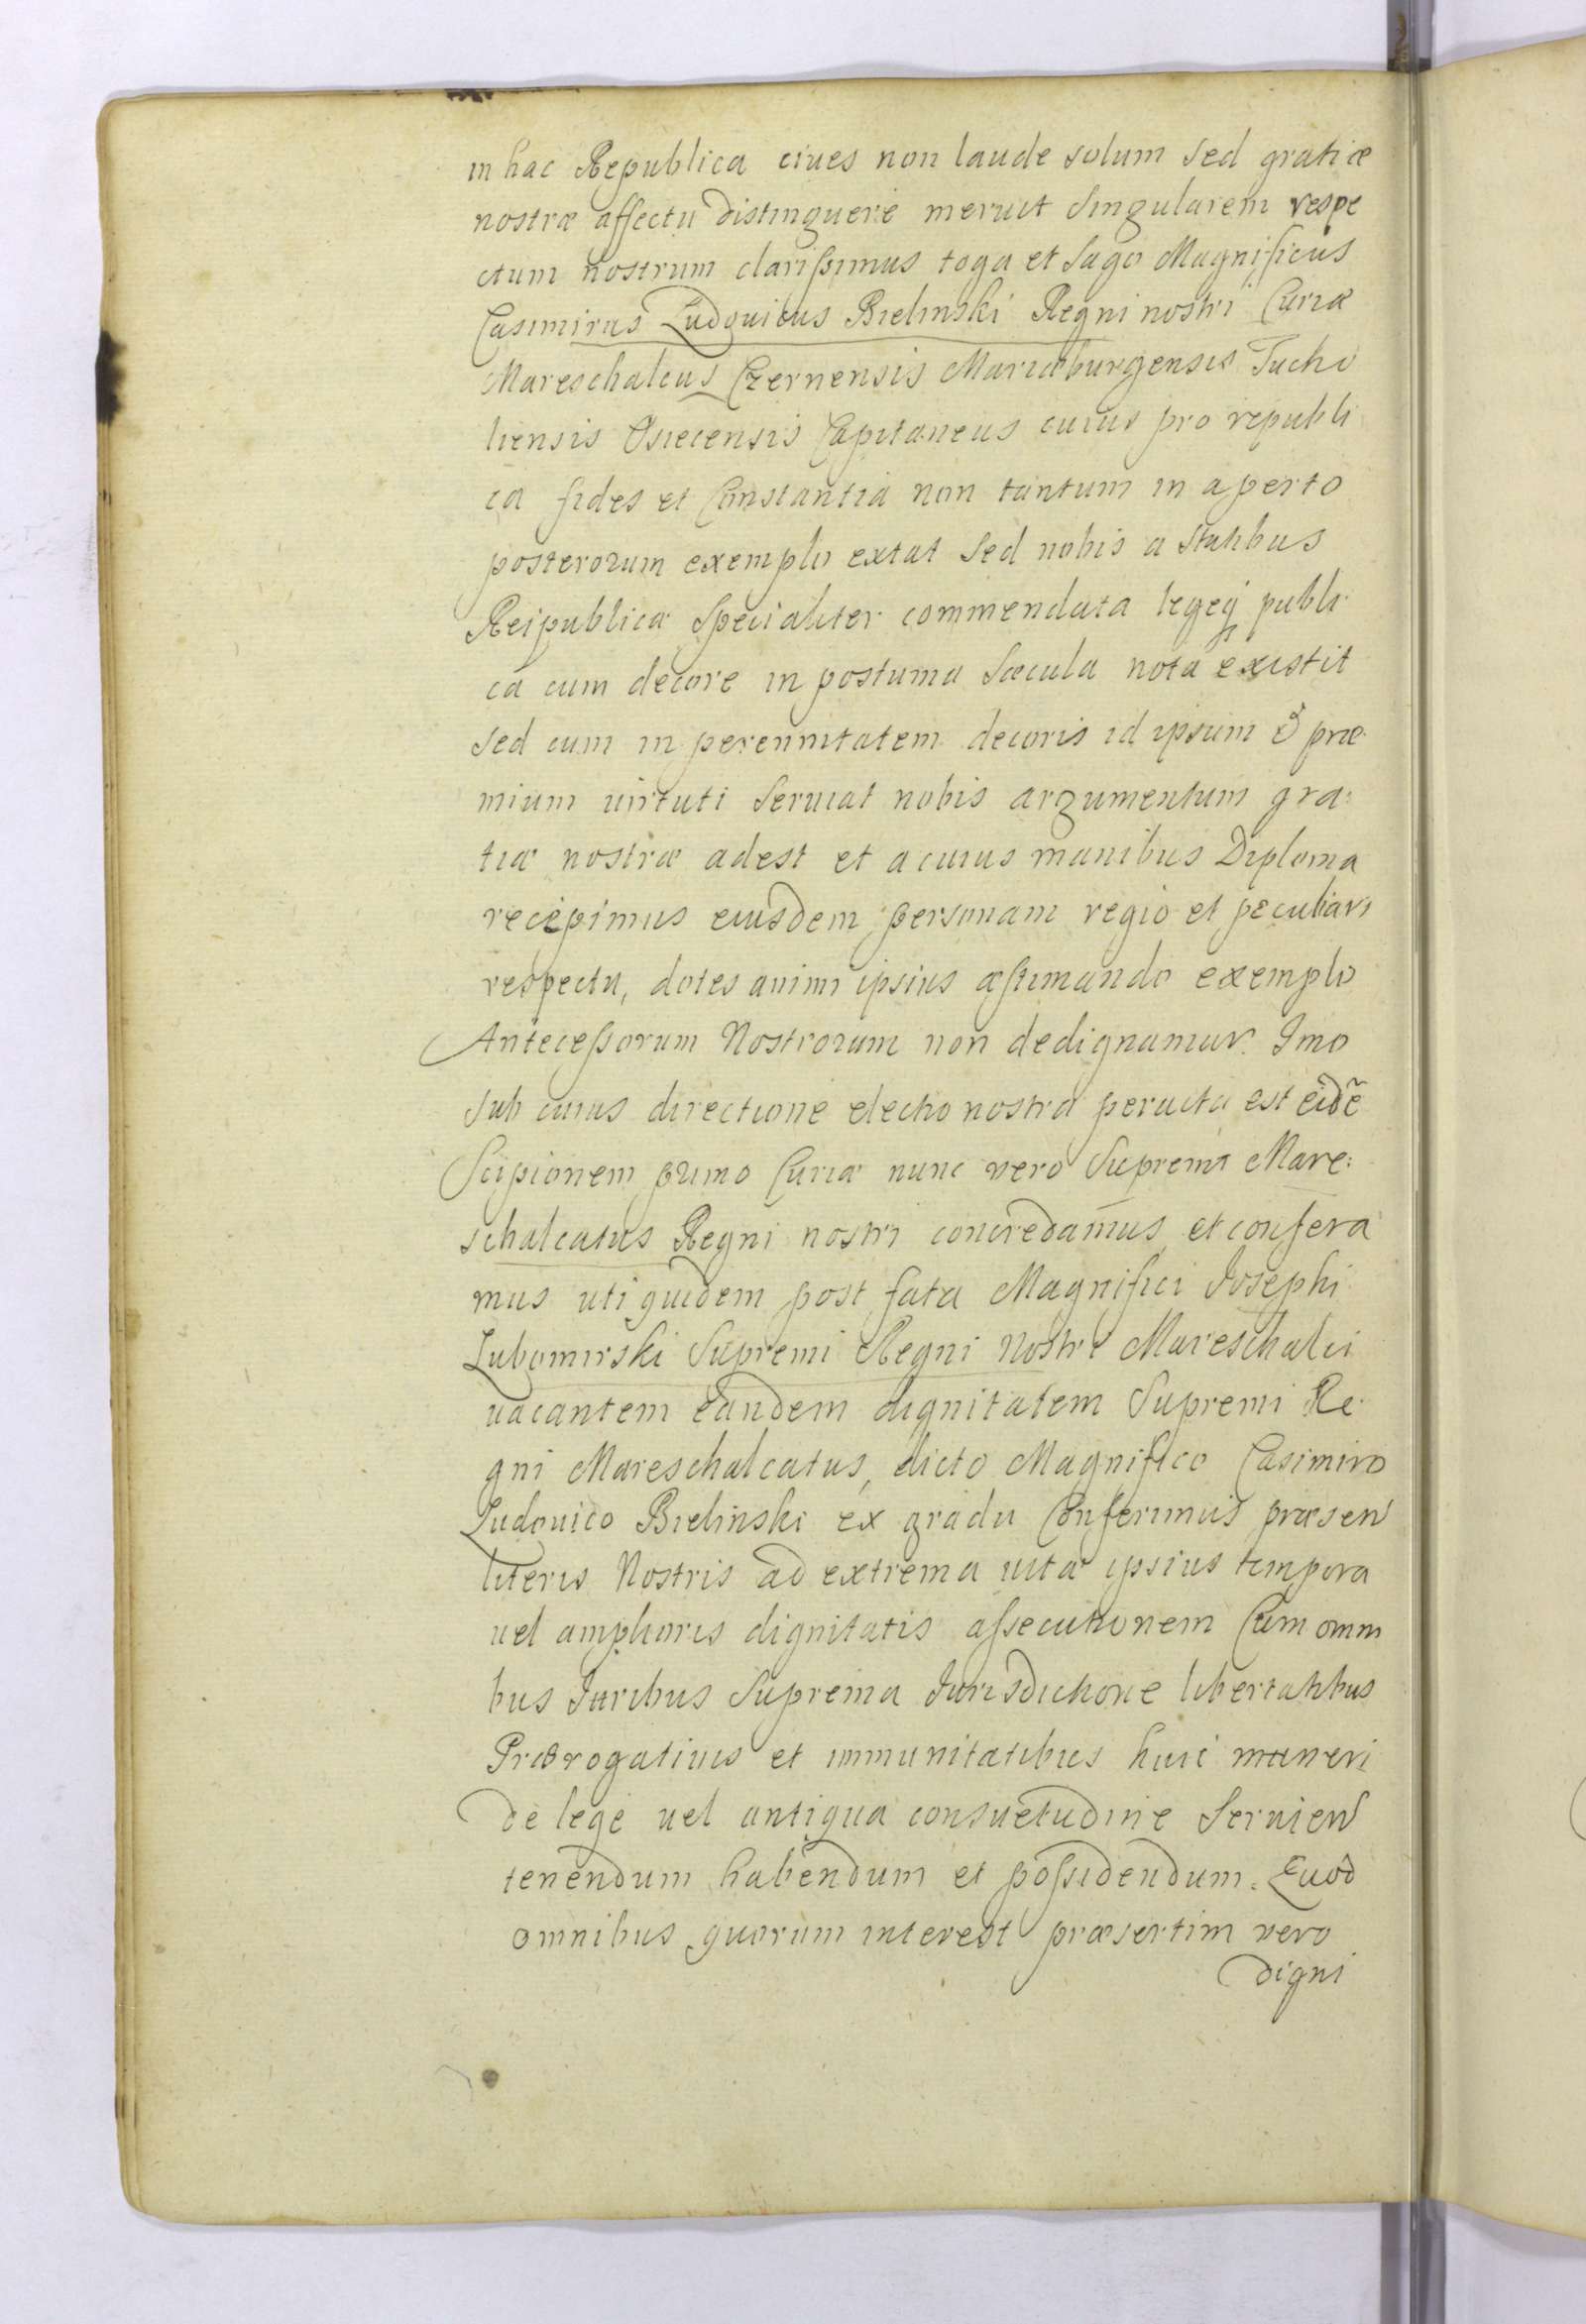 in hac Republica ciues non laude solum sed gratiæ
nostræ affectu distinguere meruit singularem respe
ctum nostrum clarissimus toga et sago Magnificus
Casimirus Ludouicus Bielinski Regni nostri Curiæ
Mareschalcus Czernensis Mariæburgensis Tucho
liensis Osiecensis Capitaneus cuius pro republi
ca fides et Constantia non tantum in aperto
posterorum exemplo extat sed nobis a statibus
Reipublicæ specialiter commendata legeq publi
ca cum decore in postuma sæcula nota existit
sed cum in perennitatem decoris id ipsum & præ
mium uirtuti seruiat nobis argumentum gra:
tiæ nostræ adest et a cuius manibus Diploma
recepimus eiusdem personam regio et peculiari
respectu, dotes animi ipsius æstimando exemplo
Antecessorum Nostrorum non dedignamur. Imo
sub cuius directione electio nostra peracta est eidẽ
Scipionem primo Curiæ nunc vero Supremi Mare:
schalcatus Regni nostri concredamus, et confera
mus uti quidem post fata Magnifici Josephi
Lubomirski Supremi Regni Nostri Mareschalci
uacantem eandem dignitatem Supremi Re
gni Mareschalcatus, dicto Magnifico Casimiro
Ludouico Bielinski ex gradu Conferimus præsen
literis Nostris ad extrema uitæ ipsius tempora
uel amplioris dignitatis assecutionem Cum omni
bus Juribus Suprema Jurisdictione libertatibus
Prærogatiuis et immunitatibus huic muneri
de lege uel antiqua consuetudine seruien
tenendum habendum et possidendum. Quod
omnibus quorum interest præsertim vero
digni